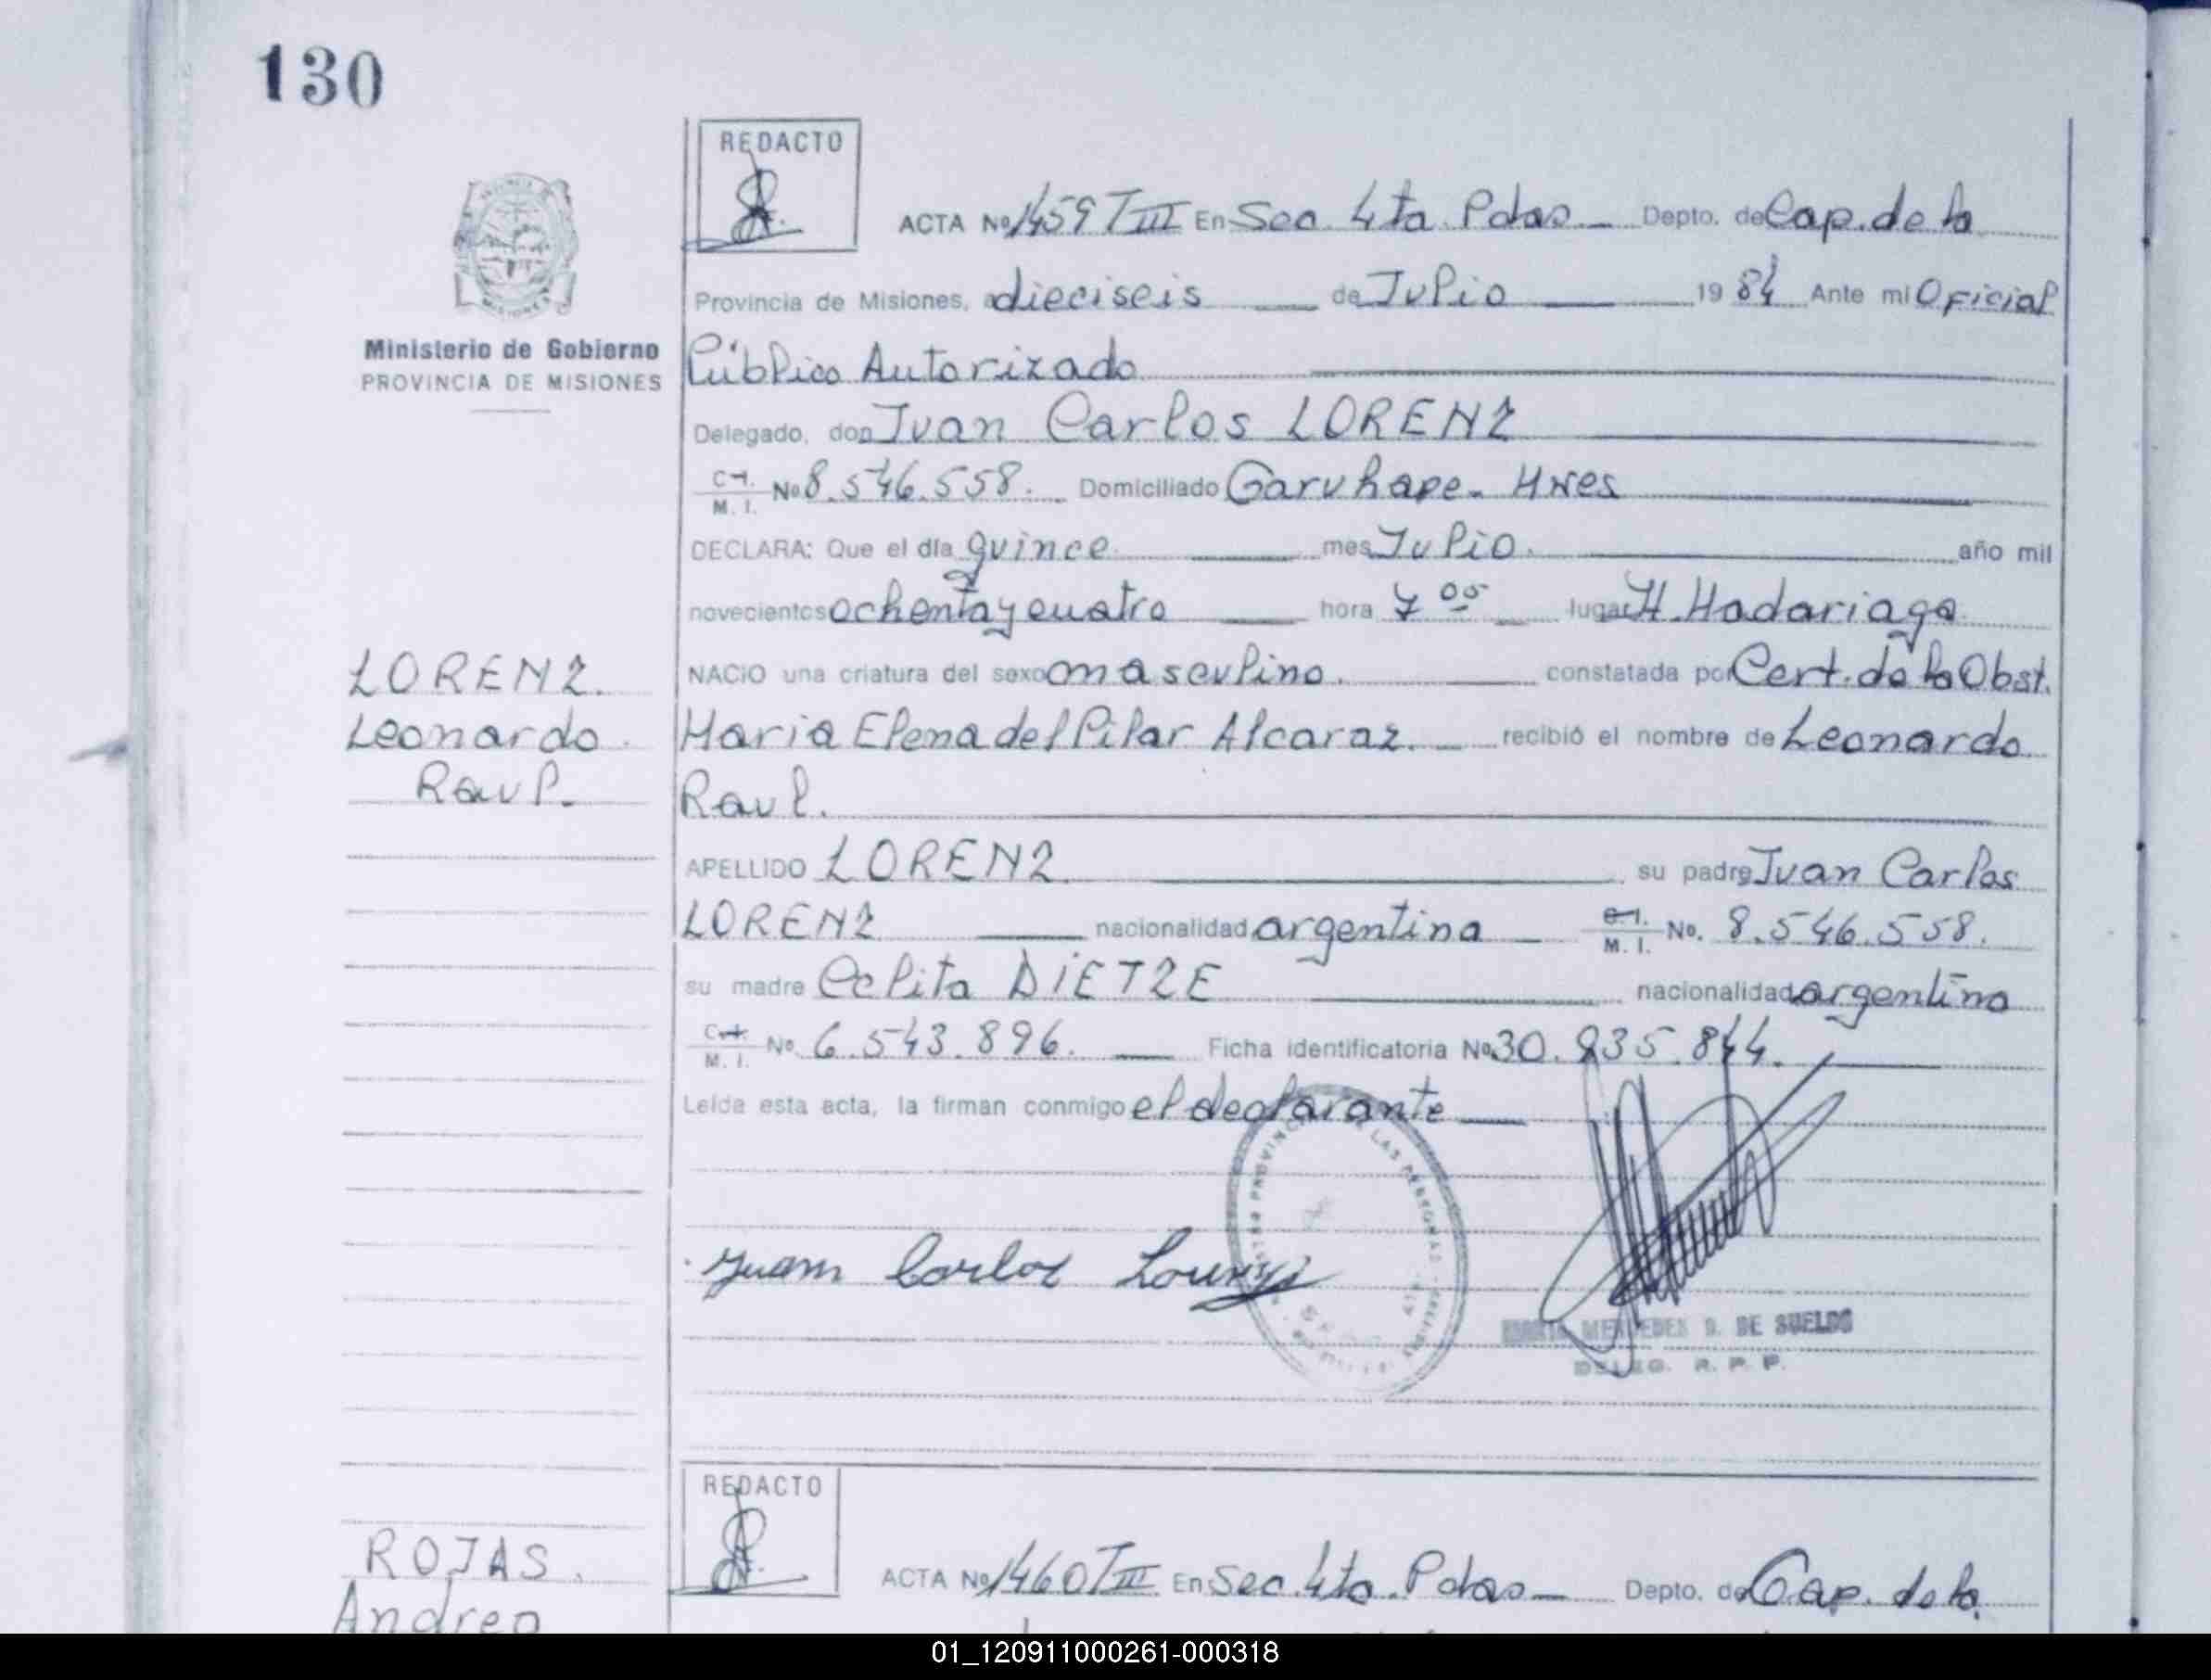 130
REDACTO
ACTA No 1459 T III En Sec. 4ta. Pdas. Depto. de Cap. de la
Provincia de Misiones, a dieciseis de Julio 1984 Ante mi Oficial
Ministerio de Gobierno
PROVINCIA DE MISIONES
Público Autorizado
Delegado, don Juan Carlos LORENZ
C.I. M. I. No 8.546.558. Domiciliado Garuhape. Mnes
DECLARA: Que el día quince mes Julio. año mil
novecientos ochenta y cuatro hora 7 05 lugar H. Madariaga
LORENZ. NACIO una criatura del sexo masculino. constatada por Cert. de la Obst.
Leonardo Maria Elena del Pilar Alcaraz. recibió el nombre de Leonardo
Raul. Raul.
APELLIDO LORENZ su padre Juan Carlos
LORENZ nacionalidad argentina C.I. M. I. No. 8.546.558.
su madre Celita DIETZE nacionalidad argentina
C.I. M. I. No. 6.543.896. Ficha identificatoria No 30.935.844.
Leída esta acta, la firman conmigo el declarante
Juan Carlos Lorenz
MERCEDES D. DE SUELDO
DELEG. R. P. P.
REDACTO
ROJAS. ACTA No 1460 T III En Sec. 4ta. Pdas Depto. de Cap. de la
Andrea
01_120911000261-000318